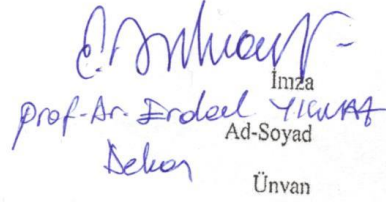 İmza
Prof. Dr. Erdal
Ad-Soyad
Dekan
Ünvan